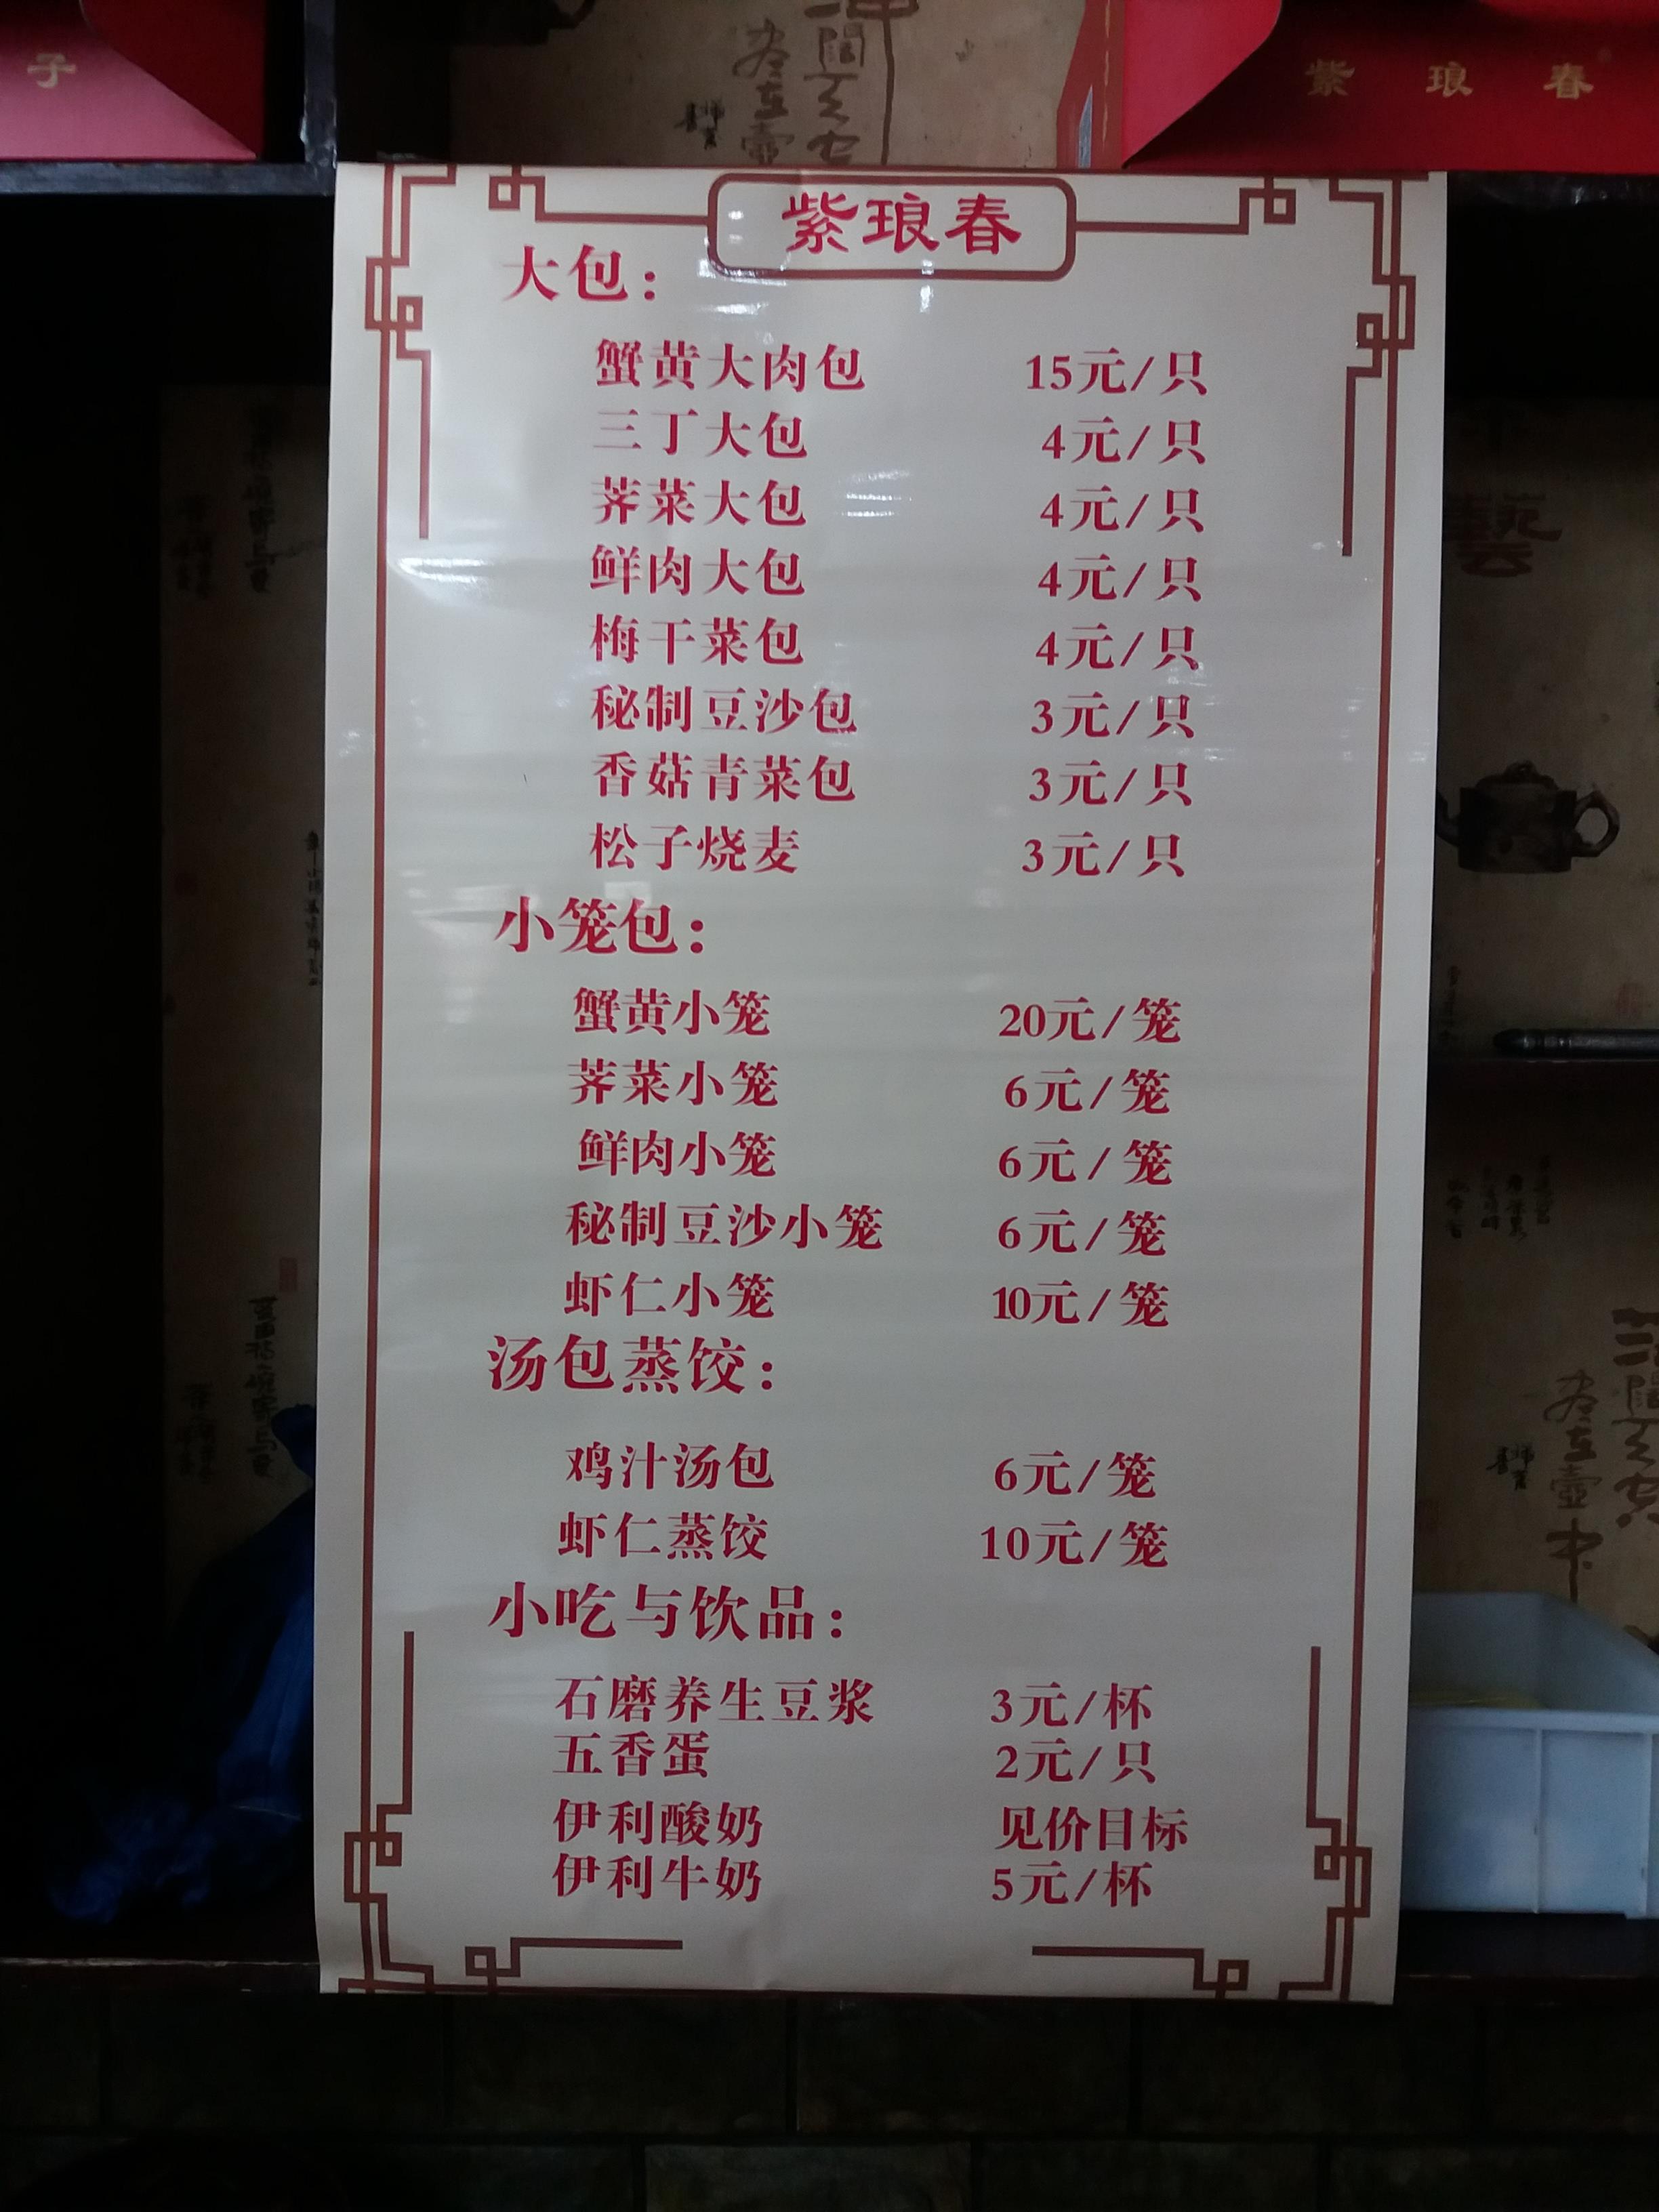 子
紫琅春
紫琅春
大包：
蟹黄大肉包 15元/只
三丁大包 4元/只
荠菜大包 4元/只
鲜肉大包 4元/只
梅干菜包 4元/只
秘制豆沙包 3元/只
香菇青菜包 3元/只
松子烧麦 3元/只
小笼包：
蟹黄小笼 20元/笼
荠菜小笼 6元/笼
鲜肉小笼 6元/笼
秘制豆沙小笼 6元/笼
虾仁小笼 10元/笼
汤包蒸饺：
鸡汁汤包 6元/笼
虾仁蒸饺 10元/笼
小吃与饮品：
石磨养生豆浆 3元/杯
五香蛋 2元/只
伊利酸奶 见价目标
伊利牛奶 5元/杯